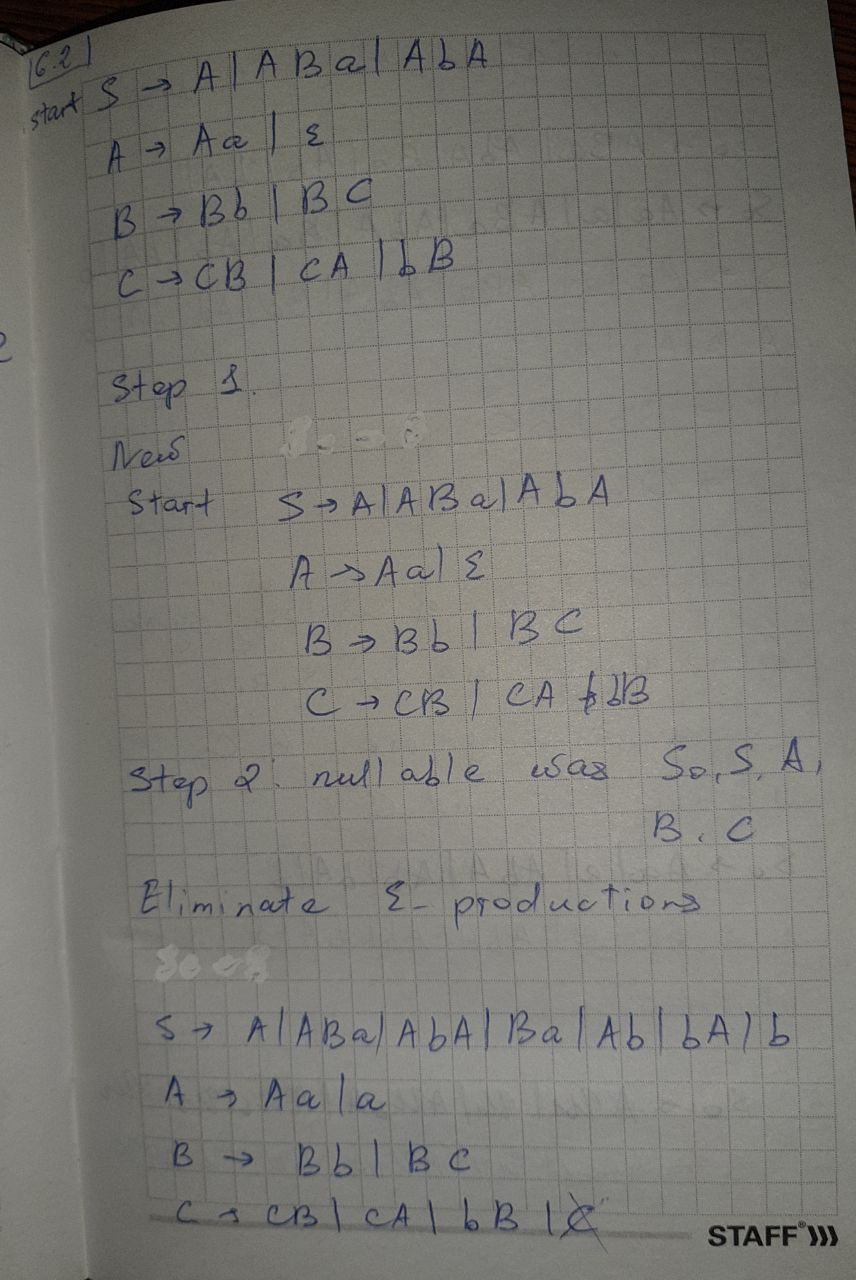 6.2
start S → A | A B a | A b A
A → A a | ε
B → B b | B C
C → C B | C A | b B
Step 1.
New
Start S → A | A B a | A b A
A → A a | ε
B → B b | B C
C → C B | C A | b B
Step 2. nullable was S₀, S, A,
B, C
Eliminate ε- productions
S → A | A B a | A b A | B a | A b | b A | b
A → A a | a
B → B b | B C
C → C B | C A | b B |
STAFF®